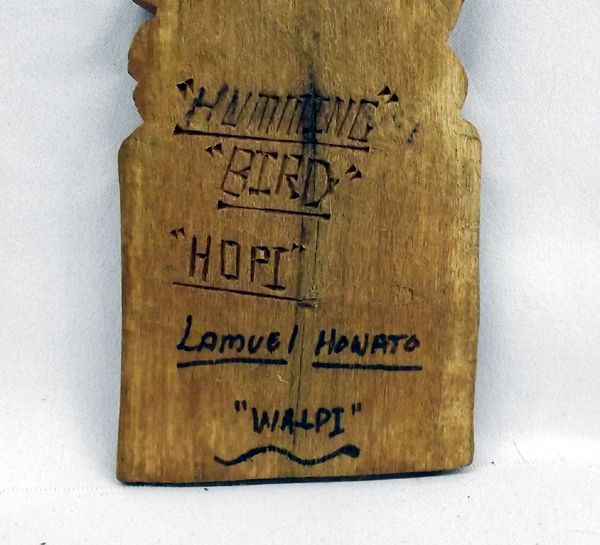 "HUMMING"
"BIRD"
"HOPI"
LAMUEl HONATO
"WALPI"